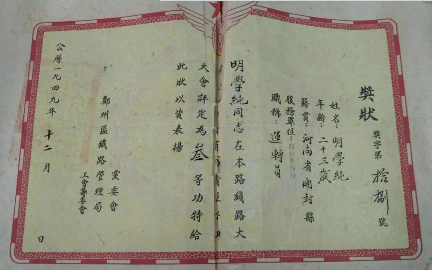 獎狀
獎字第 拾捌 號
姓名：明學純
年齡：二十三歲
籍貫：河南省開封縣
服務單位：
職務：運轉員
明學純同志在本路綫路大
大會評定為叁等功特給
此狀以資表揚
鄭州區鐵路管理局
黨委會
工會委員會
公曆一九四九年十二月 日